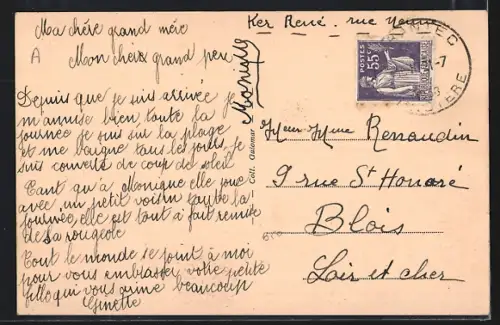 Ma chère grand mère
A Mon cher grand père
Depuis que je suis arrivée je
m'amuse bien toute la
journée je suis sur la plage
et me baigne tous les jours, je
suis couverte de coup de soleil
Tant qu'à Monique elle joue
avec un petit voisin toute la
journée elle est tout à fait remise
de sa rougeole
Tout le monde se joint à moi
pour vous embrasser votre petite
fille qui vous aime beaucoup
Ginette
Monique
Ker René - rue
Coll. Oudemar
POSTES
55c
Mr Mme Renaudin
9 rue St Honoré
Blois
Loir et cher